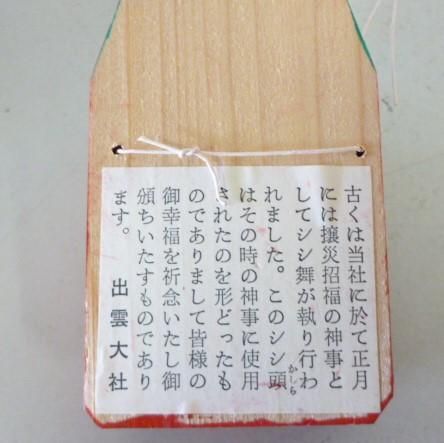 古くは当社に於て正月
には攘災招福の神事と
してシシ舞が執り行わ
れました。このシシ頭
かしら
はその時の神事に使用
されたのを形どったも
のでありまして皆様の
御幸福を祈念いたし御
頒ちいたすものであり
ます。
出雲大社